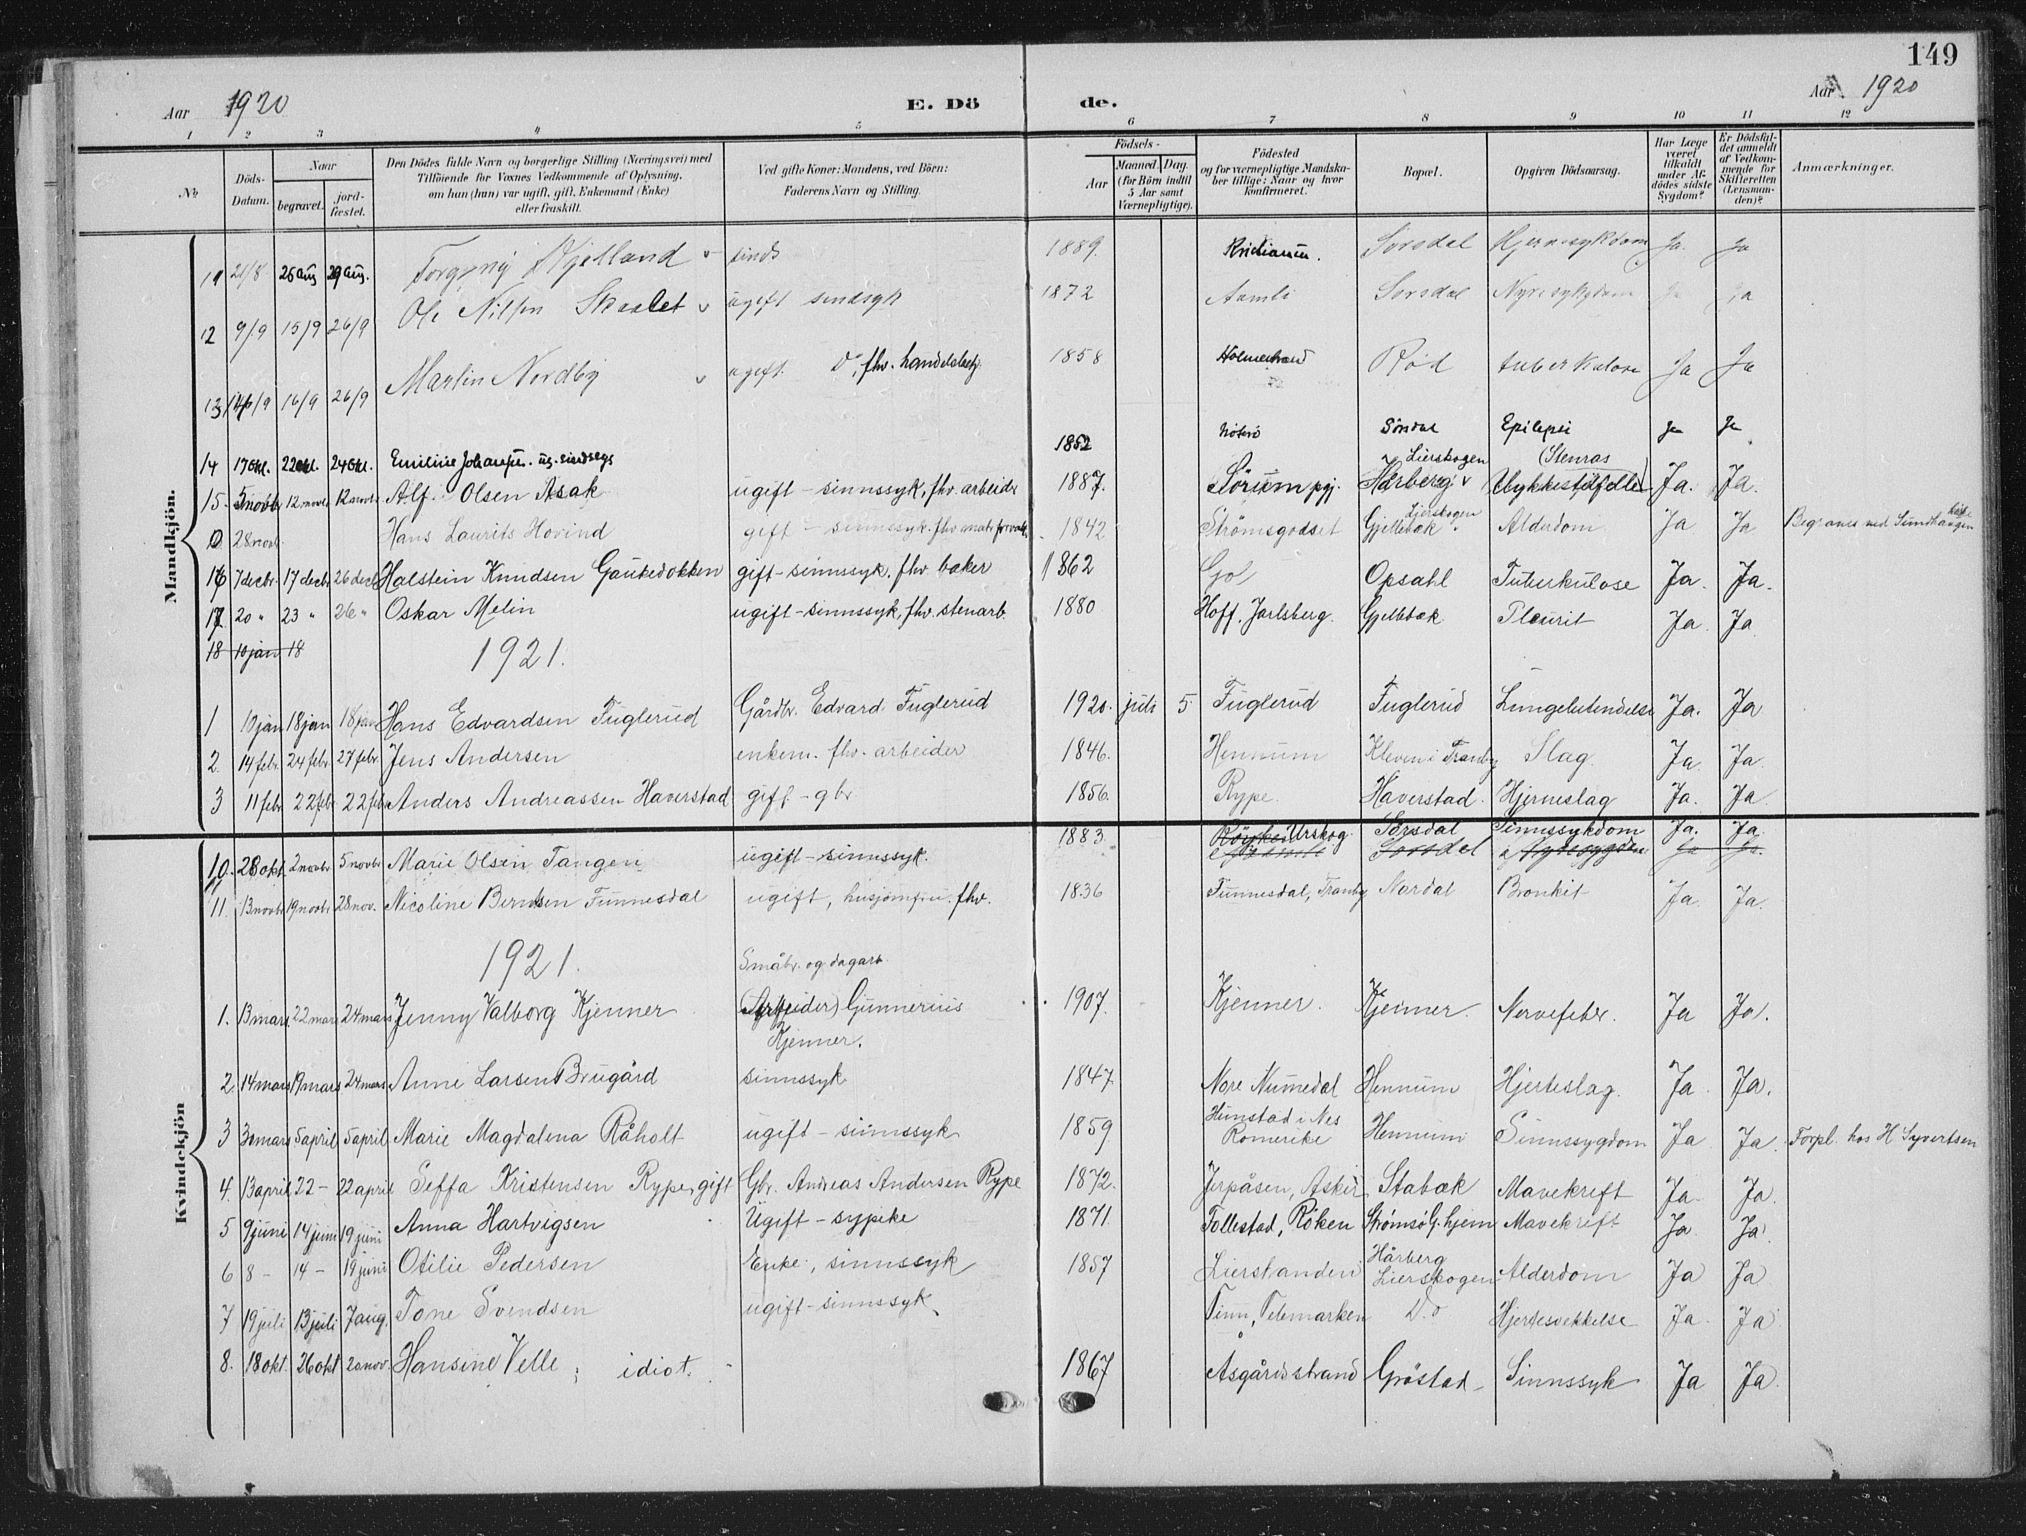 149
Aar 1920 E. Dö de. Aar 1920
1 2 3 4 5 6 7 8 9 10 11 12
No. Döds-Datum. Naar begravet. jordfæstet. Den Dödes fulde Navn og borgerlige Stilling (Næringsvei) med Tilföiende for Voxnes Vedkommende af Oplysning, om han (hun) var ugift, gift, Enkemand (Enke) eller fraskilt. Ved gifte Koner: Mandens, ved Börn: Faderens Navn og Stilling. Födsels- Aar Maaned. Dag. (for Börn indtil 5 Aar samt Værnepligtige). Födested og for værnepligtige Mandskaber tillige: Naar og hvor konfirmeret. Bopæl. Opgiven Dödsaarsag. Har Læge været tilkaldt under Afdödes sidste Sygdom? Er Dödsfaldet anmeldt af Vedkommende for Skifteretten (Lensmanden)? Anmærkninger.
Mandkjön.
11 21/8 26 aug 29 aug. Torgny Kjelland sinds 1889. Kristiania. Sorsdal Hjernesykdom Ja Ja
12 9/9 15/9 26/9 Ole Nilsen Skaalet ugift sindsyk 1872 Aamli Sorsdal Nyresykdom Ja Ja
13 14/9 16/9 26/9 Martin Nordby ugift Do, fhv. handelsbetj. 1858 Holmestrand Röd tuberkulose Ja Ja
14 17 okt. 22 okt. 24 okt. Emilie Johansen. ug. sindssyg 1852 Nöterö Sörsdal Epilepsi Ja Ja
15. 5 novbr 12. novbr 12 novbr Alf. Olsen Asak ugift - sinnssyk, fhv. arbeider 1887. Sörum pgj. Lierskogen Harberg (Stenras Ulykkestilfelle) Ja. Ja.
28 novb. Hans Laurits Hovind gift - sinnssyk. fhv. matr. forvalt. 1842 Strömsgodset Lierskogen Gjellebæk Alderdom Ja Ja Begraves ved Sundhaugen
16 7 decbr. 17 decbr 26 decbr Halstein Knudsen Gaukedokken gift - sinnssyk. fhv. baker 1862 Gol Opsahl Tuberkulose Ja. Ja.
17. 20 " 23 " 26 " Oskar Melin ugift - sinnssyk, fhv. stenarb. 1880 Hoff. Jarlsberg. Gjellebæk Pleurit Ja. Ja.
18 10 jan 18 1921.
1 10 jan 18 jan 18 jan Hans Edvardsen Fuglerud Gårdbr. Edvard Fuglerud 1920. juli 5 Fuglerud Fuglerud Lungebetendelse Ja. Ja
2. 14 febr. 24 febr. 27 febr. Jens Andersen enkem. fhv. arbeider 1846. Hennum Kleven i Tranby Slag. Ja. Ja.
3 11 febr 22 febr 22 febr Anders Andreassen Haverstad gift - gbr. 1856. Rype. Haverstad. Hjerneslag Ja. Ja.
Kvindekjön
10. 28 okt. 2 novbr 5 novbr Marie Olsen Tangen ugift - sinnssyk. 1883. Röyken Urskog. Sørsdal Sorsdal Sinnssykdom Nyresygdom Ja. Ja.
11. 13 novbr 19 novbr 28 nov. Nicoline Berntsen Tunnesdal ugift, husjomfru. fhv. 1836 Tunnesdal, Tranby Nordal Bronkit Ja. Ja.
1921. Småbr. og dagarb.
1. 13 mars. 22 mars 24 mars Jenny Valborg Kjenner (Arbeider) Gunnerius Kjenner. 1907. Kjenner. Kjenner. Nervefeber. Ja Ja.
2. 14 mars 19 mars 24 mars Anne Larsen Brugård sinnssyk 1847. Nore Numedal Hennum Hjerteslag. Ja Ja.
3 30 mars 5 april 5 april Marie Magdalena Råholt ugift - sinnssyk 1859 Hunstad i Nes Romerike Hennum Sinnssygdom Ja Ja. Forpl. hos H. Syvertsen
4. 13 april 22 - 22 april Seffa Kristensen Rype, gift Gbr. Andreas Andersen Rype 1872. Jerpåsen, Asker Stabæk Mavekreft Ja. Ja.
5 9 juni 14 juni 19 juni Anna Hartvigsen Ugift - sypike 1871. Follestad, Röken Strømsö G. hjem Mavekreft Ja. Ja.
6 8 - 14 - 19 juni Otilie Pedersen Enke, sinnssyk 1857 Lierstranden Hårberg Lierskogen Alderdom Ja Ja
7 19 juli 13 juli 7 aug. Tone Svendsen ugift - sinnssyk Tinn, Telemarken Do Hjertesvekkelse Ja. Ja
8. 18 okt. 26 okt 20 nov. Hansine Velle, idiot. 1867 Åsgårdsstrand Gröstad Sinnssyk Ja Ja.